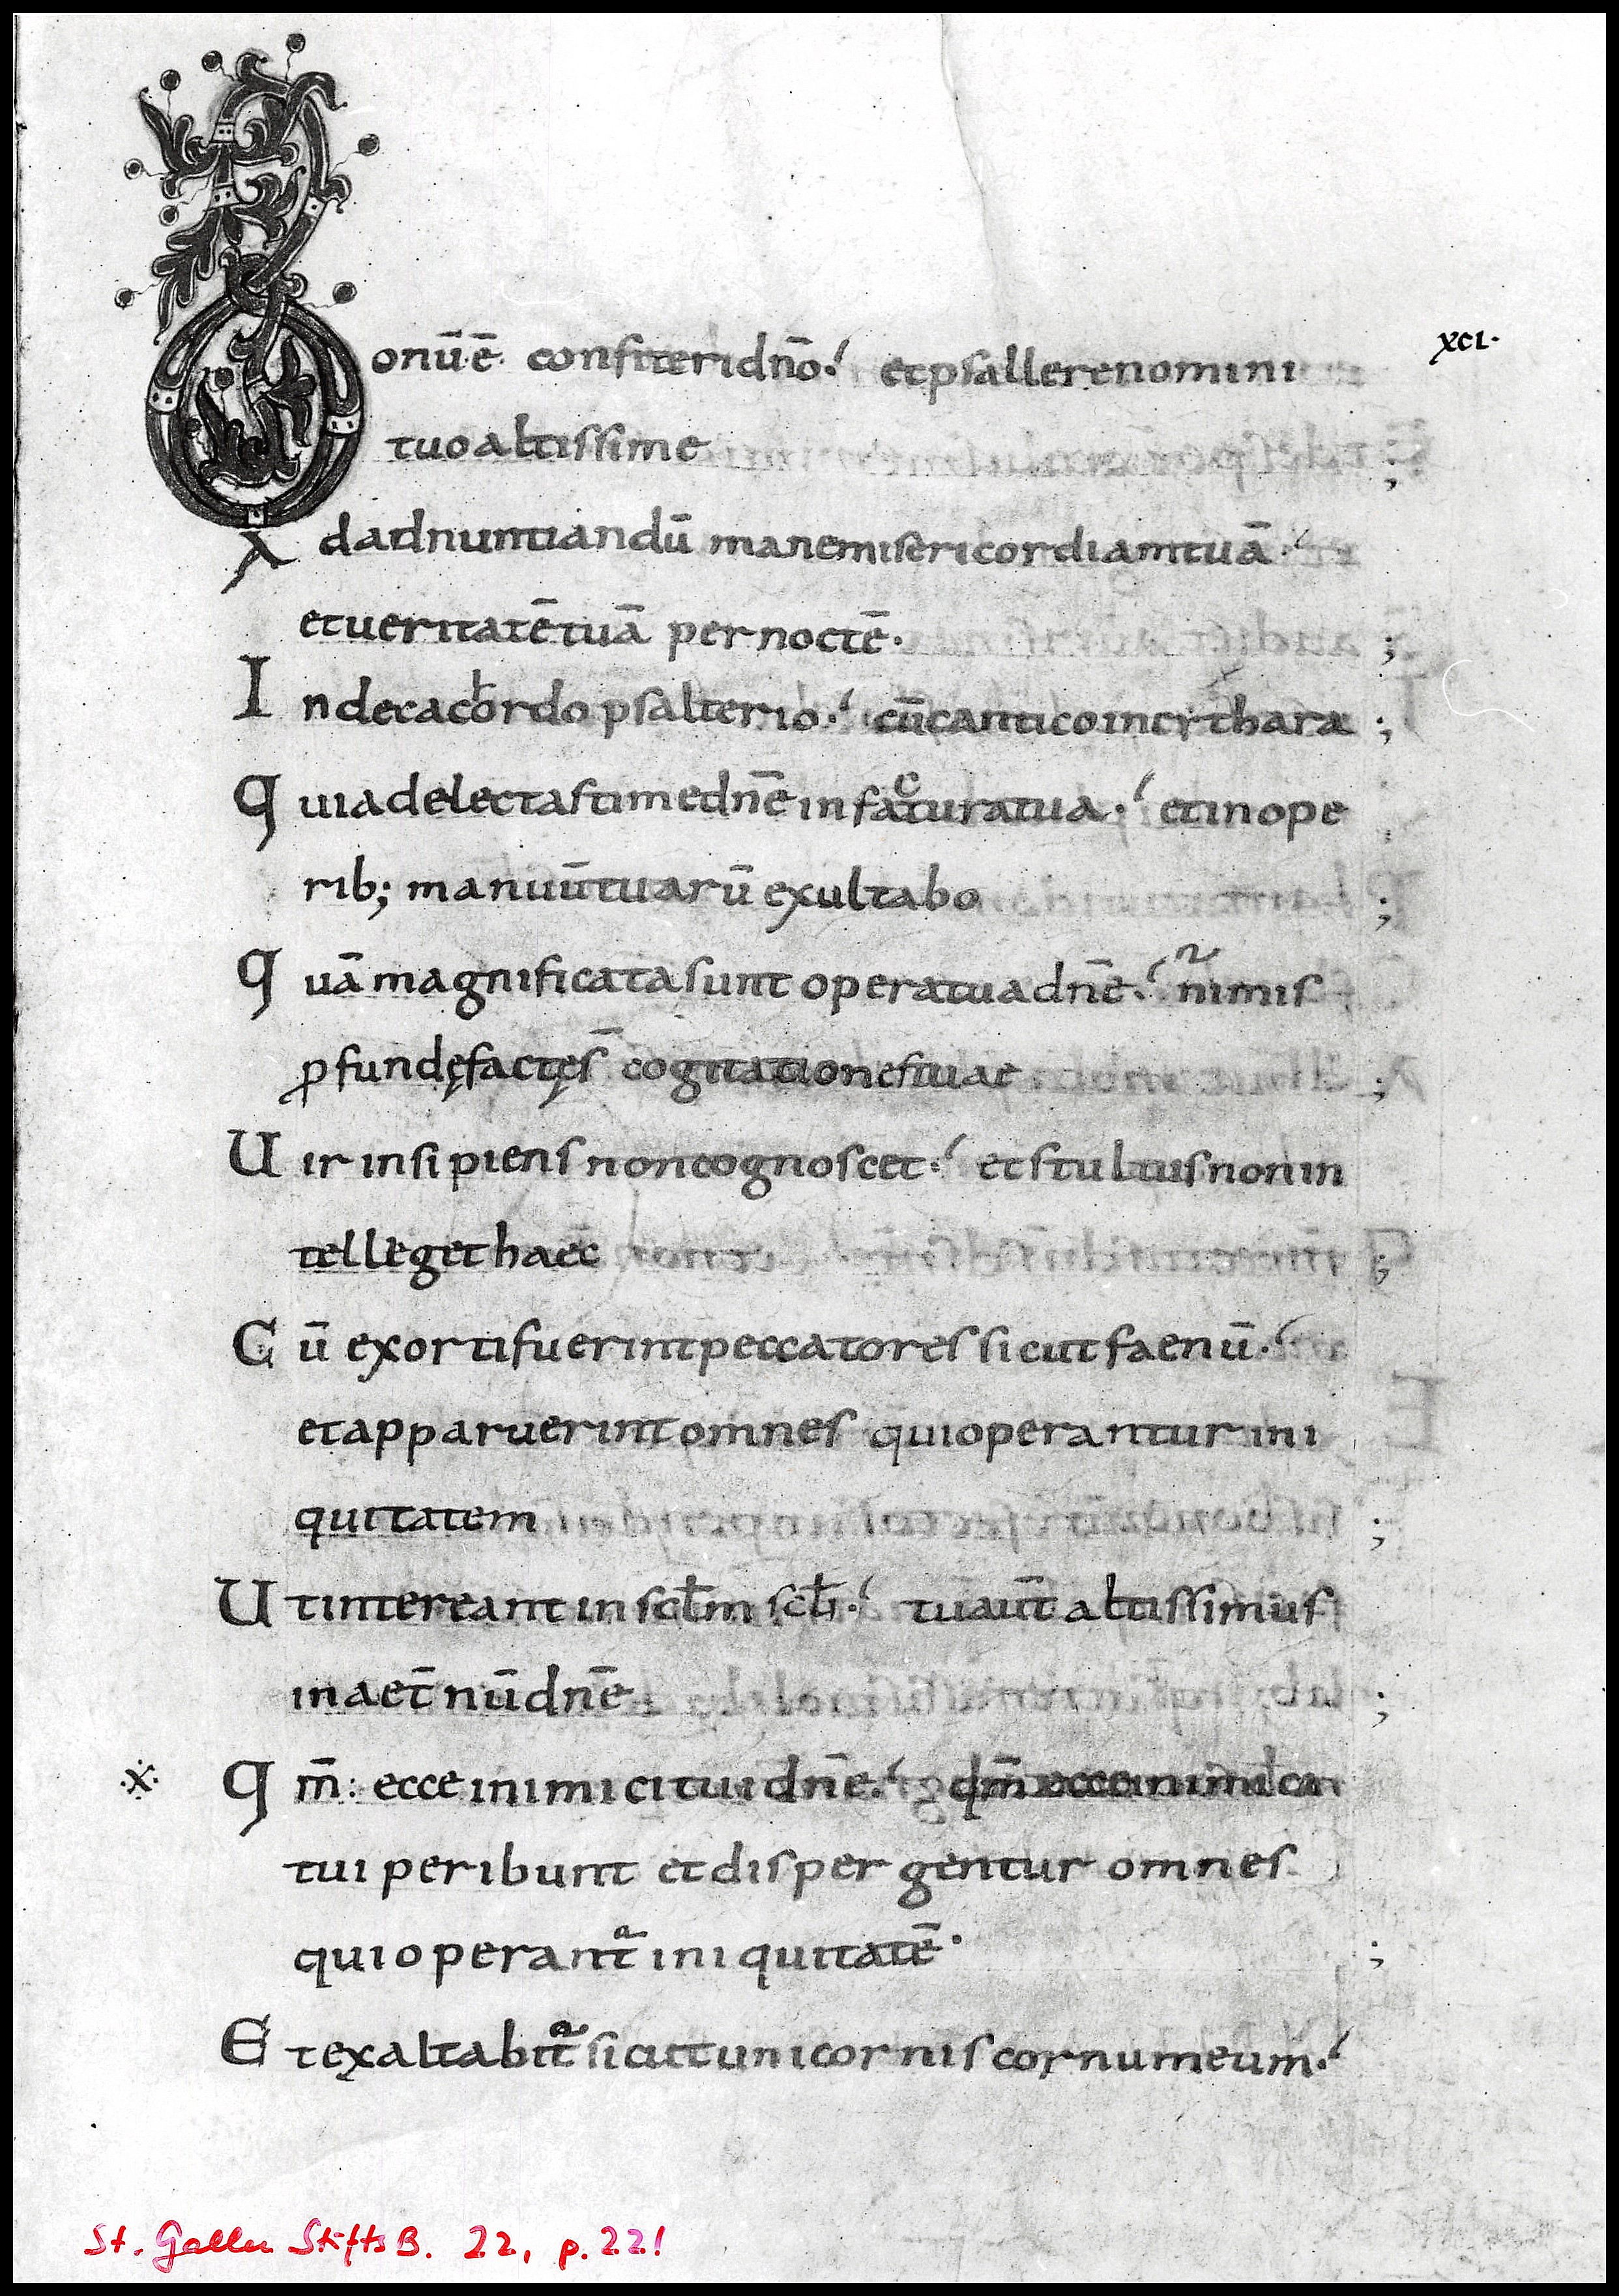 xci·
Bonū·ē· confiteri dn̄o·⸵ et psallere nomini
tuo altissime ;
Ad adnuntiandū mane misericordiam tuā·⸵
et ueritatē tuā per noctē· ;
In decachordo psalterio·⸵ cū cantico in cythara ;
Quia delectasti me dn̄e in factura tua·⸵ et in ope
rib; manuū tuarū exultabo ;
Quā magnificata sunt opera tua dn̄e·⸵ nimis
ꝓfundę factę s̄ cogitationes tuae ;
Uir insipiens non cognoscet·⸵ et stultus non in
telleget haec ;
Cū exorti fuerint peccatores sicut faenū·⸵
et apparuerint omnes qui operantur ini
quitatem ;
Ut intereant in sclm̄ scłi·⸵ tu aut̄ altissimus
in aet̄nū dn̄e ;
·x· Qm̄: ecce inimici tui dn̄e·⸵ qm̄ ecce inimici
tui peribunt et dispergentur omnes
qui operant᷑ iniquitatē· ;
Et exaltabit᷑ sicut unicornis cornu meum·⸵
St. Gallen StiftsB. 22, p. 221